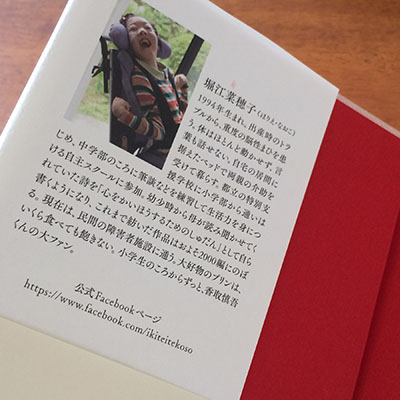 堀江菜穂子(ほりえ・なおこ)
1994年生まれ。出産時のトラ
ブルから、重度の脳性まひを患
う。体はほとんど動かせず、言
葉も話せない。自宅の居間に
据えたベッドで両親の介助を
受けて暮らす。都立の特別支
援学校に小学部から通いは
じめ、中学部のころに筆談などを練習して生活力を身につ
ける自主スクールに参加。幼少時から母が読み聞かせてく
れていた詩を「心をかいほうするためのしゅだん」として自ら
書くようになり、これまで紡いだ作品はおよそ2000編にのぼ
る。現在は、民間の障害者施設に通う。大好物のプリンは、
いくら食べても飽きない。小学生のころからずっと、香取慎吾
くんの大ファン。
公式Facebookページ
https://www.facebook.com/ikiteitekoso